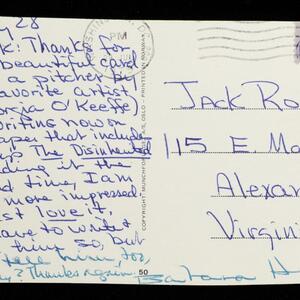 28
k: Thanks for
beautiful card
a pitcher by
favorite artist
rgia O'Keeffe)
riting now on
aper that includ
The Disinherited
ding it the
nd time, I am
more impressed
st love it,
ave to write
thing so, but
tell him, too,
y? Thanks again.
Barbara
WASHINGTON, D.C.
PM
COPYRIGHT MUNCH OSLO - PRINTED IN NORWAY
50
Jack Ro
115 E. Ma
Alexan
Virgini